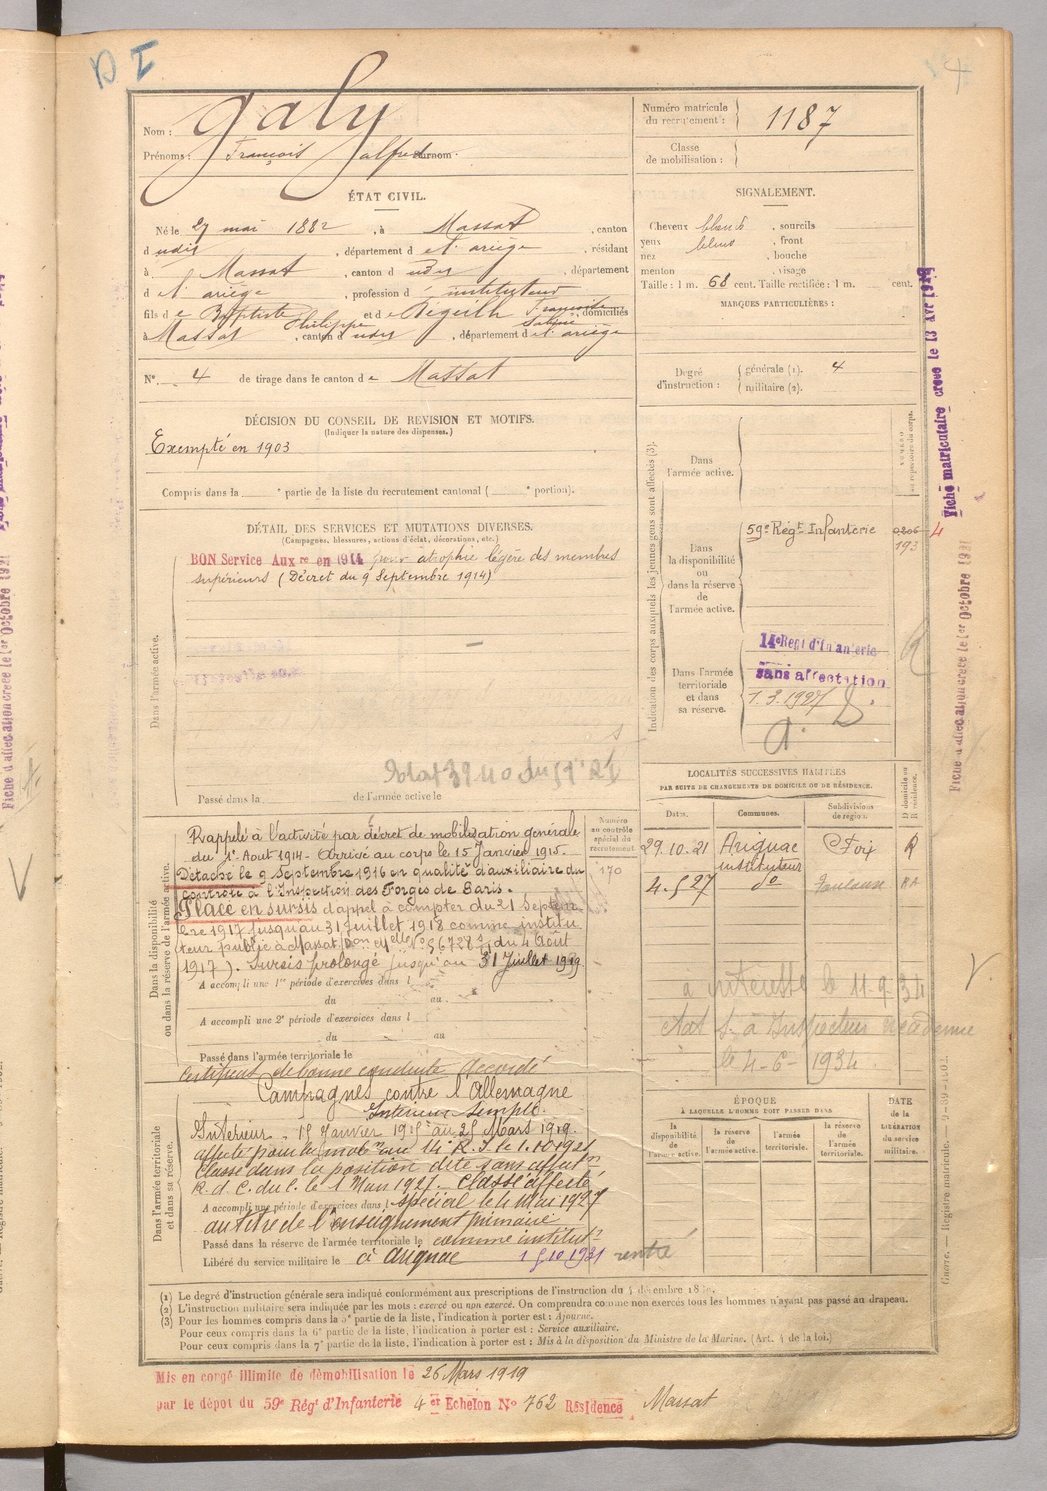 D I
4
Nom : Galy
Prénoms : François Alfred Surnom :
Numéro matricule du recrutement : 1187
Classe de mobilisation :
ÉTAT CIVIL.
Né le 27 mai 1882, à Massat, canton
d udit, département d e l'ariège, résidant
à Massat, canton d udit, département
d e l'ariège, profession d' instituteur
fils d e Baptiste Philippe et d e Séguéla Françoise, domiciliés
à Massat, canton d udit, département d e l'ariège
N° 4 de tirage dans le canton d e Massat
SIGNALEMENT.
Cheveux blonds, sourcils
yeux bleus, front
nez, bouche
menton, visage
Taille : 1 m. 68 cent. Taille rectifiée : 1 m. cent.
MARQUES PARTICULIÈRES :
Degré d'instruction : générale (1). 4
militaire (2).
DÉCISION DU CONSEIL DE REVISION ET MOTIFS.
(Indiquer la nature des dispenses.)
Exempté en 1903
Compris dans la e partie de la liste du recrutement cantonal ( e portion).
DÉTAIL DES SERVICES ET MUTATIONS DIVERSES.
(Campagnes, blessures, actions d'éclat, décorations, etc.)
Dans l'armée active.
BON Service Aux re en 1914 pour atrophie légère des membres
supérieurs (Décret du 9 Septembre 1914)
Passé dans la de l'armée active le
Indication des corps auxquels les jeunes gens sont affectés (3).
NUMÉRO au répertoire du corps.
Dans l'armée active.
Dans la disponibilité ou dans la réserve de l'armée active.
59e Régt Infanterie
193
4
Dans l'armée territoriale et dans sa réserve.
14e Regt d'Infanterie
sans affectation
1.3.1927
Dans la disponibilité ou dans la réserve de l'armée active.
Numéro au contrôle spécial du recrutement
170
Rappelé à l'activité par décret de mobilisation générale
du 1er Aout 1914. Arrivé au corps le 15 Janvier 1915.
Détaché le 9 Septembre 1916 en qualité d'auxiliaire du
contrôle à l'Inspection des Forges de Paris.
Placé en sursis d'appel à compter du 21 Septem
bre 1917 jusqu'au 31 juillet 1918 comme institu
teur public à Massat (Don Mlle N° 56728 du 4 Août
1917). Sursis prolongé jusqu'au 31 Juillet 1919
A accompli une 1re période d'exercices dans l
du au
A accompli une 2e période d'exercices dans l
du au
Passé dans l'armée territoriale le
Certificat de bonne conduite Accordé
LOCALITÉS SUCCESSIVES HABITÉES
PAR SUITE DE CHANGEMENTS DE DOMICILE OU DE RÉSIDENCE.
Dates. Communes. Subdivisions de région. D domicile ou R résidence.
29.10.21 Aurignac instituteur Foix R
4.5.27 do Toulouse RA
le 11-9-34
Inspecteur Académie
le 4-6-1934
Dans l'armée territoriale et dans sa réserve.
Campagnes contre l'Allemagne
Intérieur Simple.
Intérieur. 15 Janvier 1915 au 25 Mars 1919.
affecté pour la mobon au 14 R.I. le 1.10.1921
Classé dans la position dite sans affecton
R. d. C. du C. le 1 Mars 1927. Classé affecté
A accompli une période d'exercices dans l spécial le 4 Mai 1927
au titre de l'enseignement primaire
Passé dans la réserve de l'armée territoriale le comme institutr
Libéré du service militaire le à Aurignac 15.10.1931 rentré
ÉPOQUE
À LAQUELLE L'HOMME DOIT PASSER DANS
la disponibilité de l'armée active. la réserve de l'armée active. l'armée territoriale. la réserve de l'armée territoriale.
DATE de la LIBÉRATION du service militaire.
(1) Le degré d'instruction générale sera indiqué conformément aux prescriptions de l'instruction du 4 décembre 1889.
(2) L'instruction militaire sera indiquée par les mots : exercé ou non exercé. On comprendra comme non exercés tous les hommes n'ayant pas passé au drapeau.
(3) Pour les hommes compris dans la 5e partie de la liste, l'indication à porter est : Ajourné.
Pour ceux compris dans la 6e partie de la liste, l'indication à porter est : Service auxiliaire.
Pour ceux compris dans la 7e partie de la liste, l'indication à porter est : Mis à la disposition du Ministre de la Marine. (Art. 4 de la loi.)
Mis en congé illimité de démobilisation le 26 Mars 1919
par le dépôt du 59e Régt d'Infanterie 4 er Echelon N° 762 Résidence Massat
Fiche matriculaire créée le 13 Avr
Fiche d'affectation créée le 1er Octobre 1921